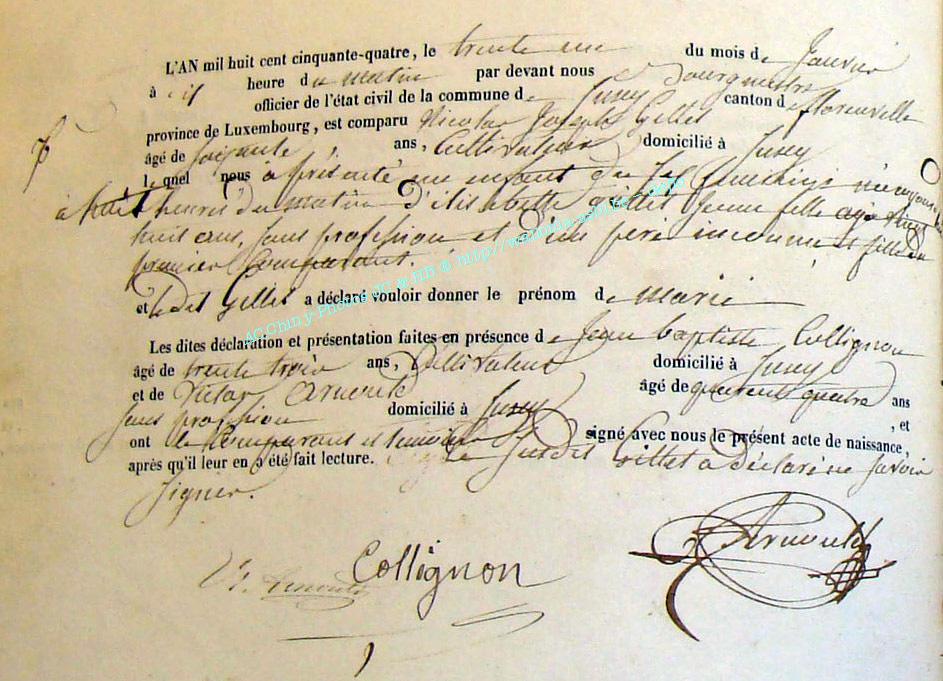 L'AN mil huit cent cinquante-quatre, le trente un du mois de Janvier
à heure du matin par devant nous Bourgmestre
officier de l'état civil de la commune de Jusey canton de Florenville
province de Luxembourg, est comparu Nicolas Joseph Gillet
âgé de soixante ans, Cultivateur domicilié à Jusey
lequel nous à présenté un enfant du sexe né
à huit heures du matin d'élisabette gillet jeune fille agée vingt
huit ans, sans profession et d'un père inconnu et fille du
premier Comparant.
et ledit Gillet a déclaré vouloir donner le prénom de marie
Les dites déclaration et présentation faites en présence de Jean baptiste Collignon
âgé de trente trois ans, Cultivateur domicilié à Jusey
et de Victor Arnould âgé de quarante quatre ans
sans profession domicilié à Jusey , et
ont le Comparant et témoins signé avec nous le présent acte de naissance,
après qu'il leur en a été fait lecture. Le susdit Gillet a déclaré ne savoir
signer.
Arnould
Collignon
AC Chiny-Photos JG & HB @ http://